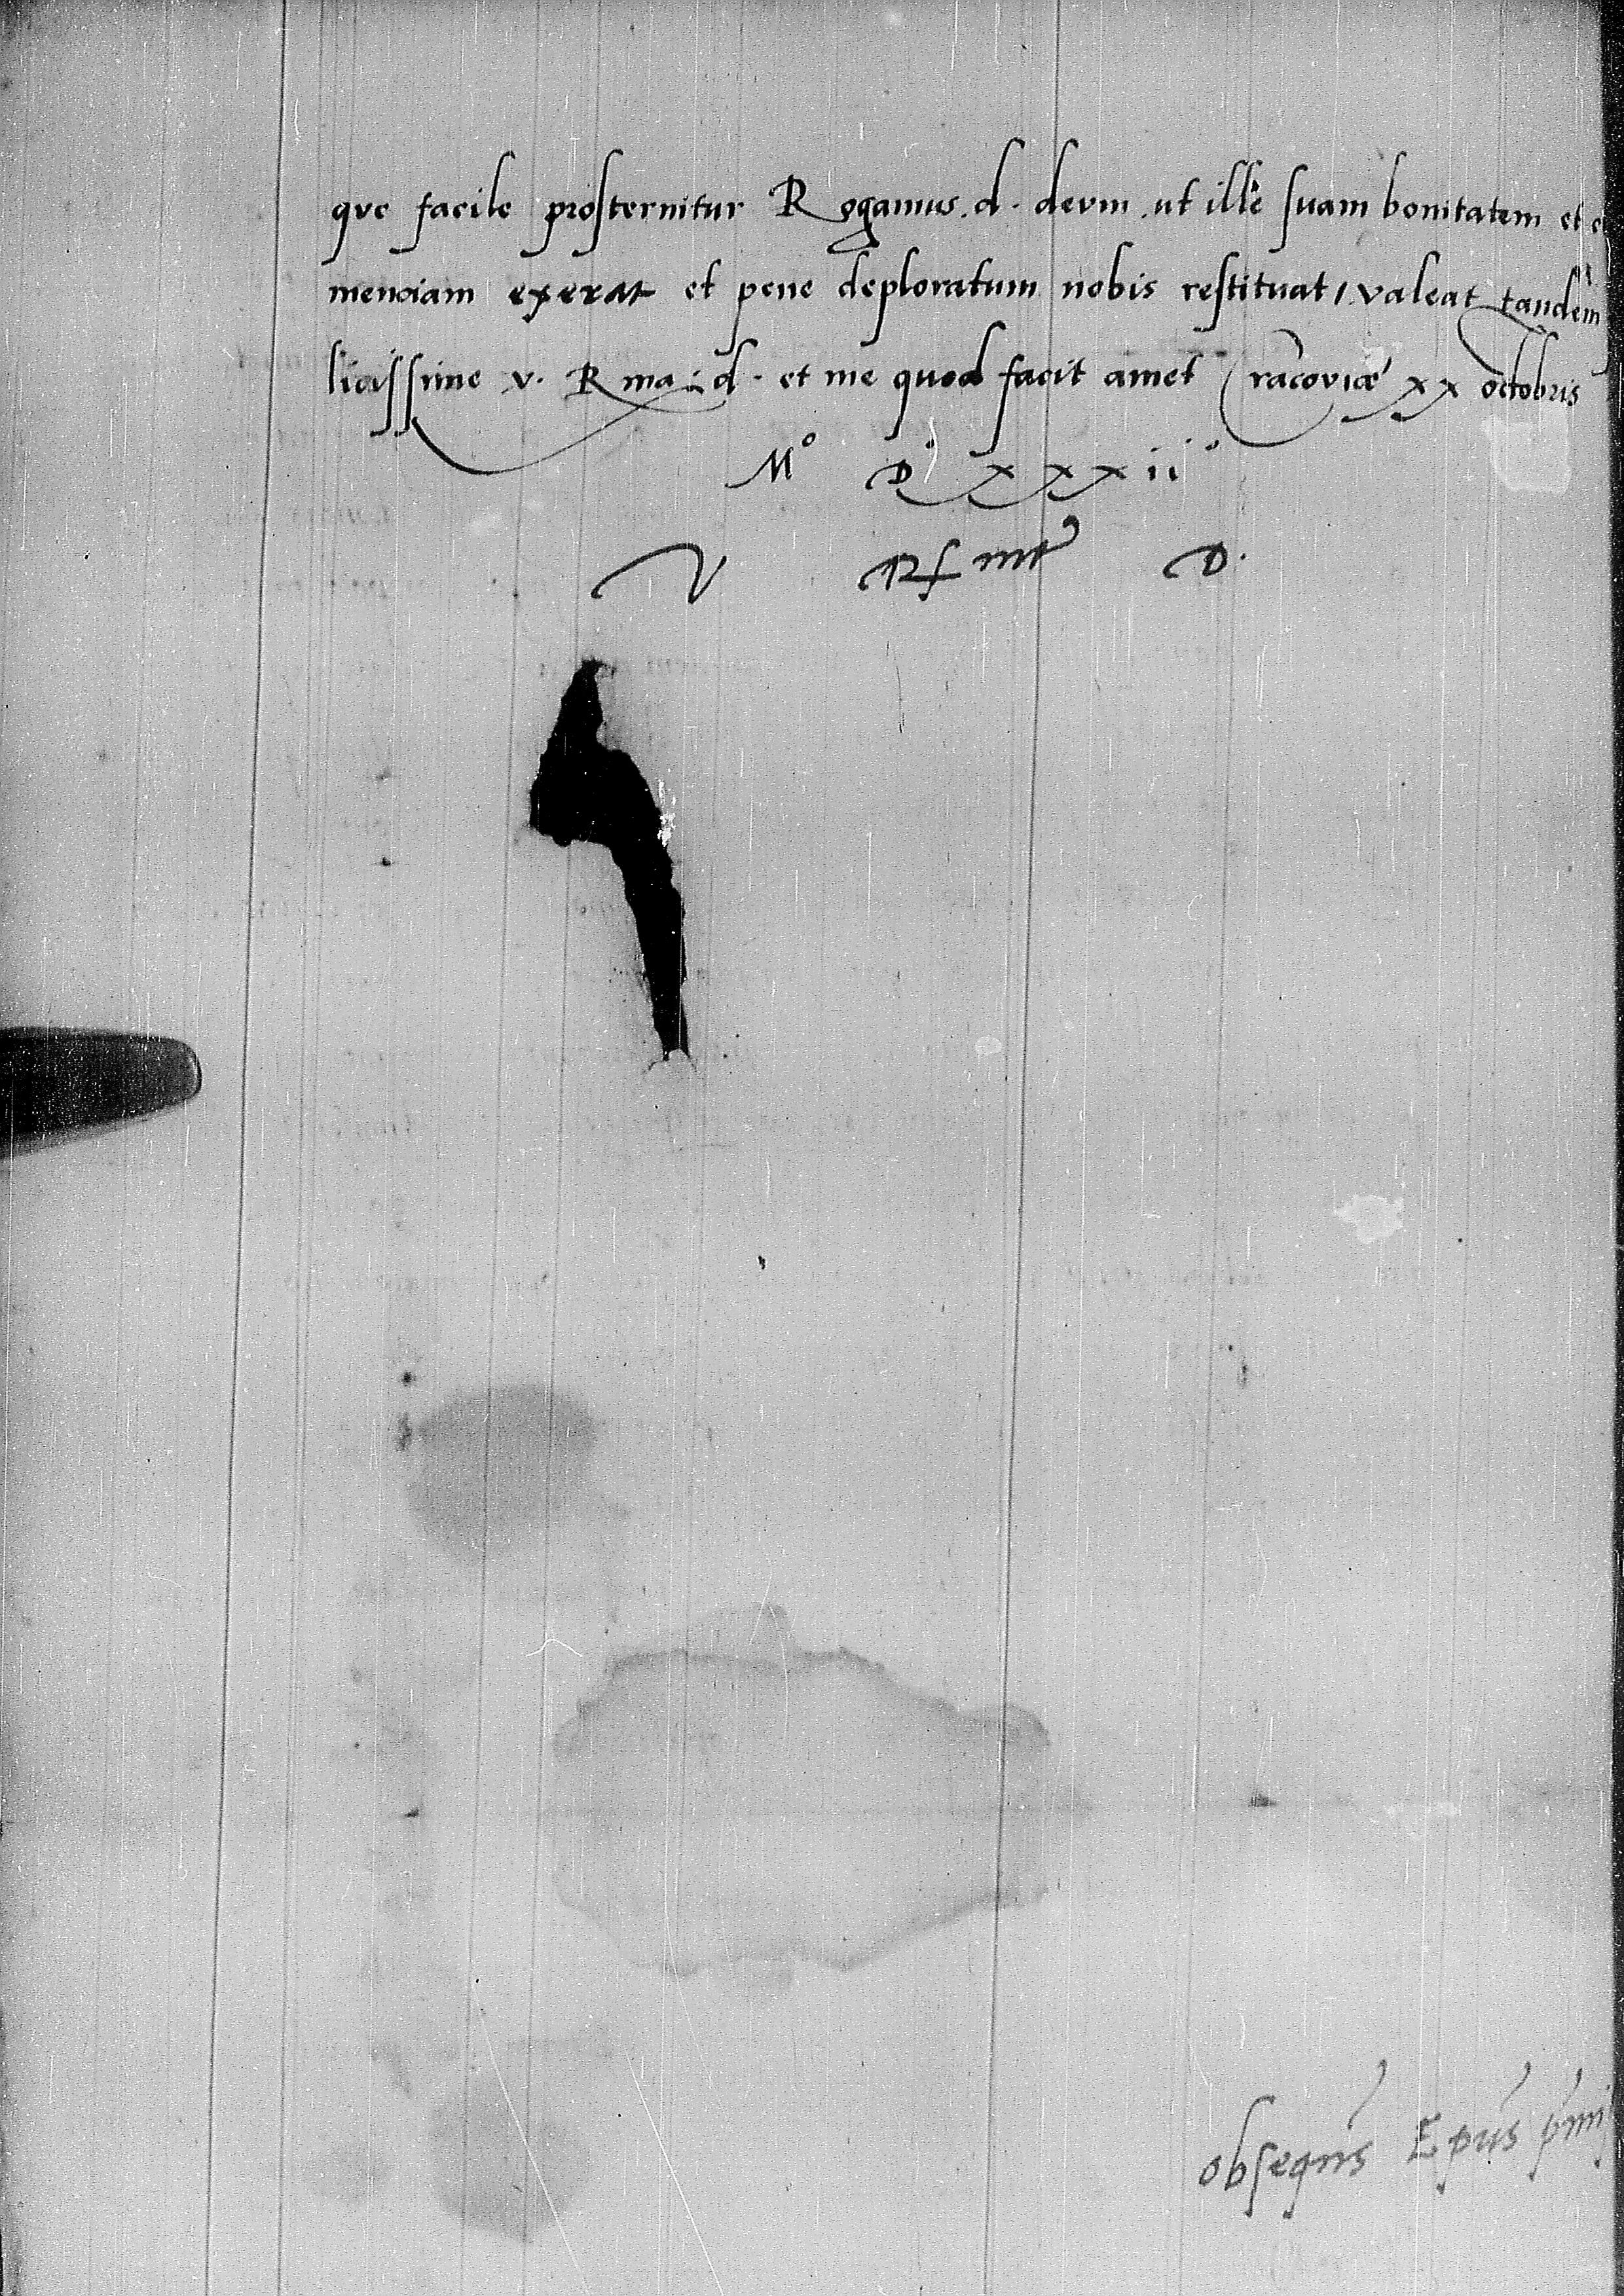 que facile prosternitur Rogamus .d. deum ut ille suam bonitatem et
menciam exerat et pene deploratum nobis restituat / valeat tandem
licissime v. Rma d. et me quod facit amet Cracoviæ xx octobris
Mº D xxxii
V R D.
obsequs Epus